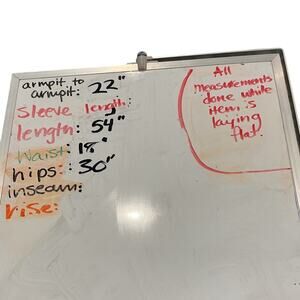 armpit to
armpit: 22"
sleeve length:
length: 54"
waist: 18"
hips: 30"
inseam:
rise:
All
measurements
done while
item is
laying
flat.